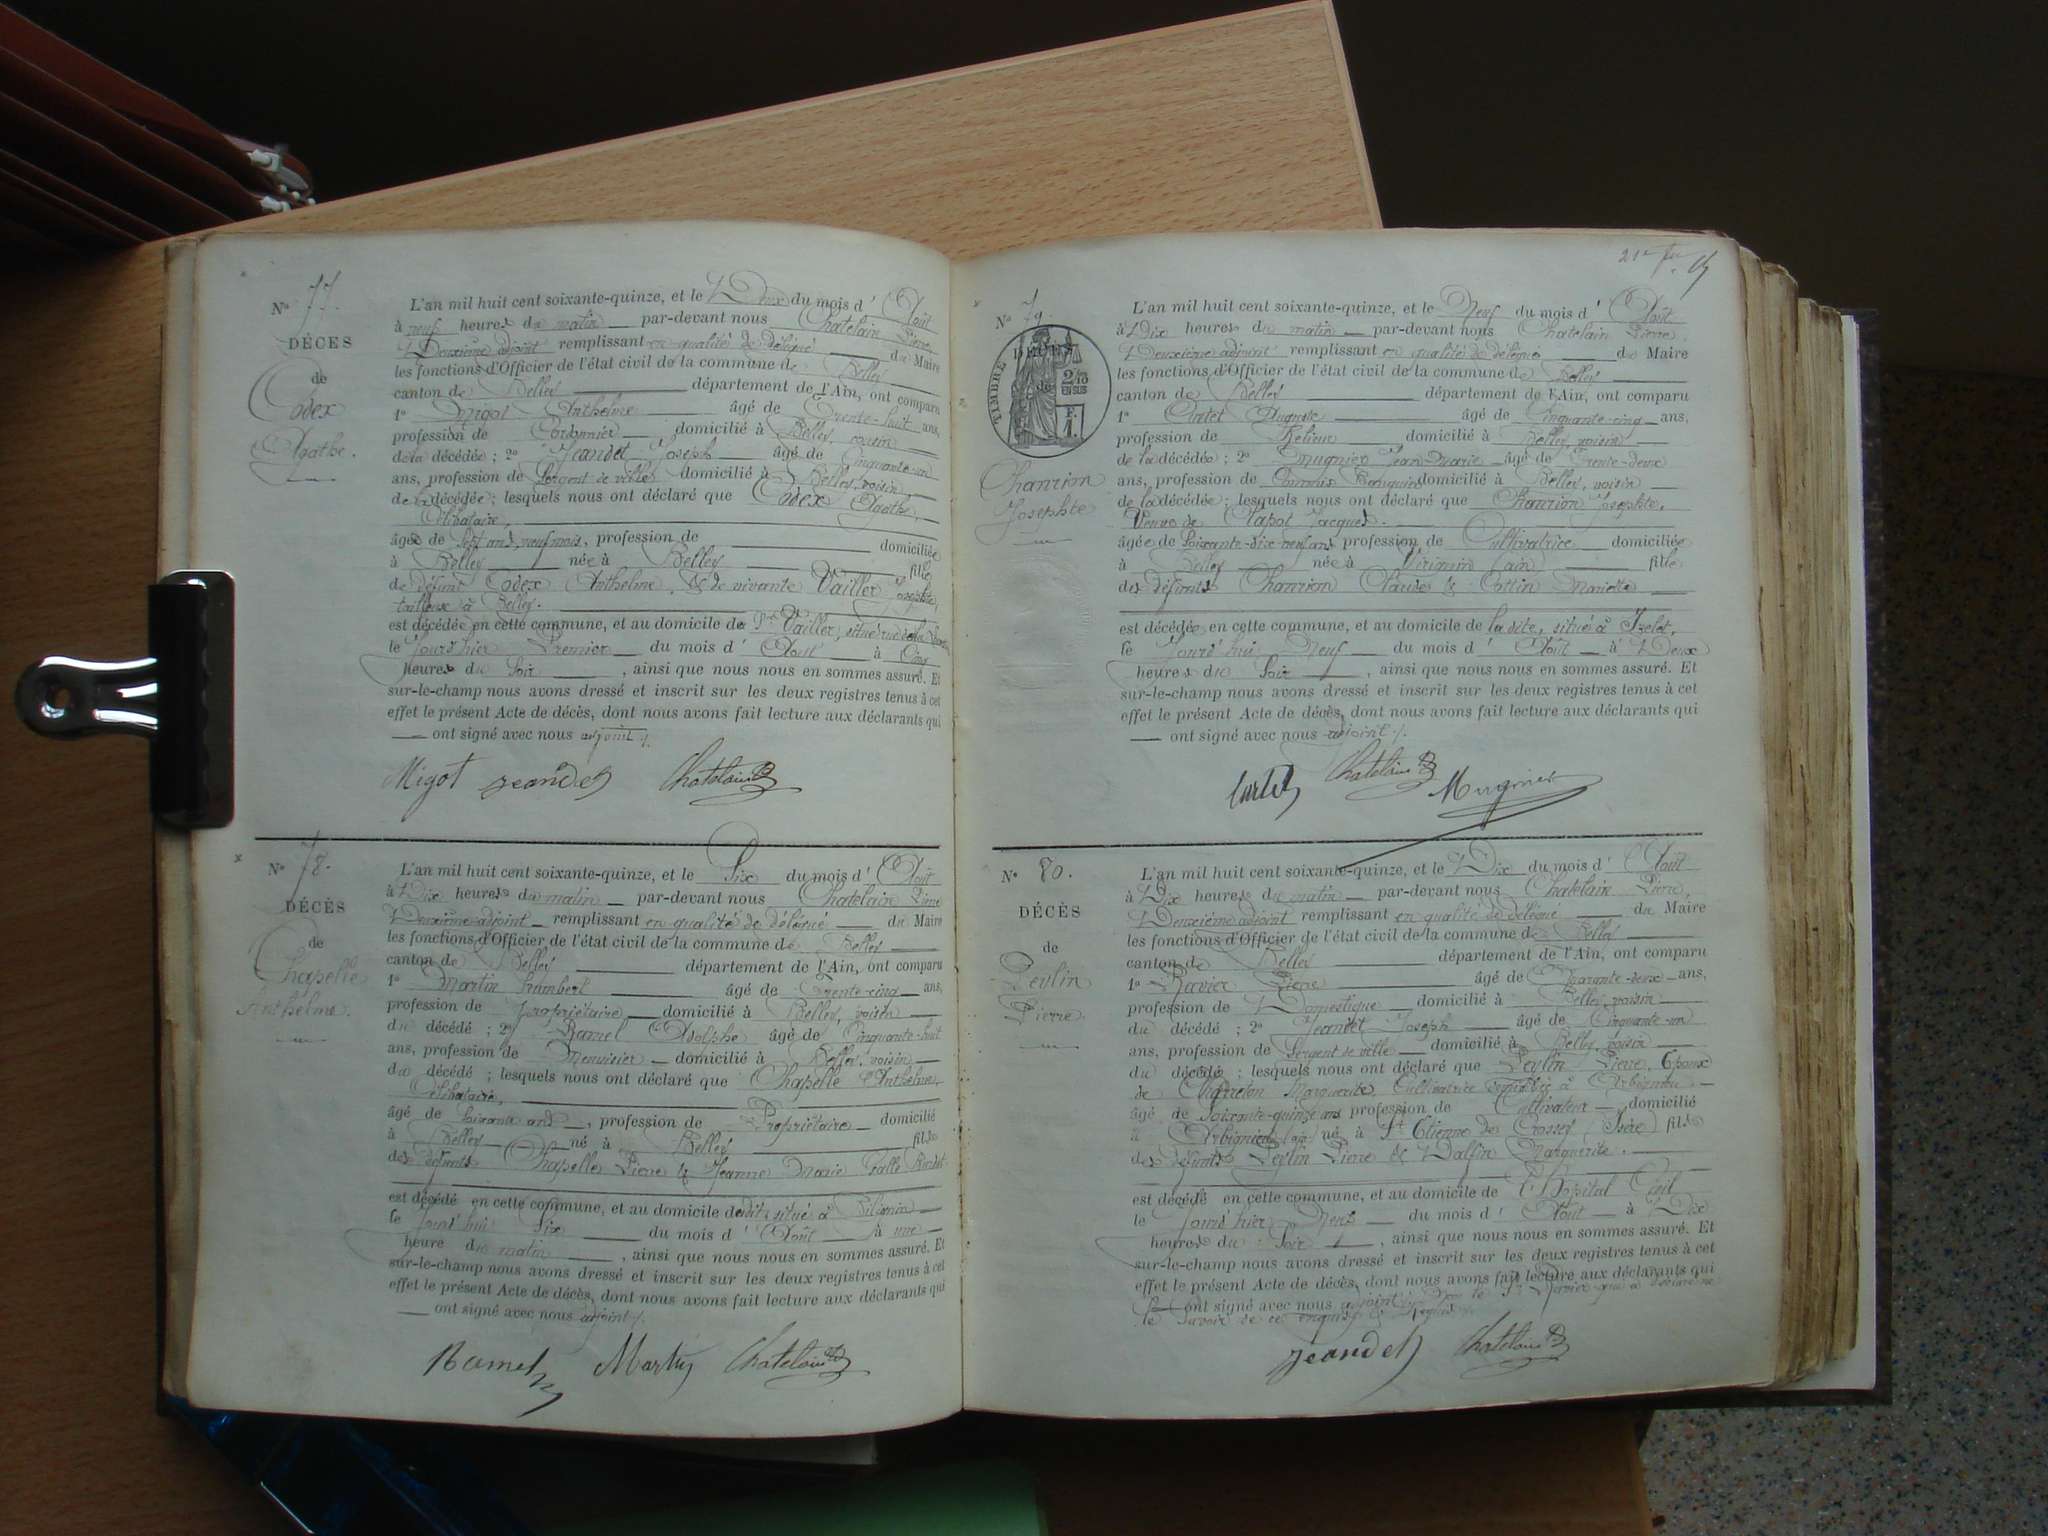 N° 77.
DÉCÈS
de
Codex
Agathe.
L'an mil huit cent soixante-quinze, et le Deux du mois d'Août
à neuf heures du matin par-devant nous Chatelain Pierre
Deuxième adjoint remplissant en qualité de délégué du Maire
les fonctions d'Officier de l'état civil de la commune de Belley
canton de Belley département de l'Ain, ont comparu
1° Migot Anthelme âgé de Trente-huit ans,
profession de Cordonnier domicilié à Belley, cousin
de la décédée ; 2° Jeandet Joseph âgé de Cinquante-un
ans, profession de Sergent de ville domicilié à Belley, voisin
de la décédée ; lesquels nous ont déclaré que Codex Agathe,
Célibataire,
âgée de Sept ans, neuf mois, profession de domiciliée
à Belley née à Belley fille
de défunt Codex Anthelme, & de vivante Vailler Josephte,
tailleuse à Belley.
est décédée en cette commune, et au domicile de Vailler, situé rue
le jourd'hier Premier du mois d'Août à Cinq
heures du Soir, ainsi que nous nous en sommes assuré. Et
sur-le-champ nous avons dressé et inscrit sur les deux registres tenus à cet
effet le présent Acte de décès, dont nous avons fait lecture aux déclarants qui
ont signé avec nous adjoint.
Migot Jeandet Chatelain
N° 78.
DÉCÈS
de
Chapelle
Anthelme.
L'an mil huit cent soixante-quinze, et le Six du mois d'Août
à Dix heures du matin par-devant nous Chatelain Pierre
Deuxième adjoint remplissant en qualité de délégué du Maire
les fonctions d'Officier de l'état civil de la commune de Belley
canton de Belley département de l'Ain, ont comparu
1° Martin Humbert âgé de Trente-cinq ans,
profession de Propriétaire domicilié à Belley, voisin
du décédé ; 2° Ramel Adolphe âgé de Cinquante-huit
ans, profession de Menuisier domicilié à Belley, voisin
du décédé ; lesquels nous ont déclaré que Chapelle Anthelme,
Célibataire,
âgé de Soixante ans, profession de Propriétaire domicilié
à Belley né à Belley fils
des défunts Chapelle Pierre & Jeanne Marie
est décédé en cette commune, et au domicile dudit, situé à
le jourd'hui Six du mois d'Août à une
heure du matin, ainsi que nous nous en sommes assuré. Et
sur-le-champ nous avons dressé et inscrit sur les deux registres tenus à cet
effet le présent Acte de décès, dont nous avons fait lecture aux déclarants qui
ont signé avec nous adjoint.
Ramel Martin Chatelain
21e
N° 79.
TIMBRE
DROITS
2/10
EN SUS
F.
1.
Chanrion
Josephte
L'an mil huit cent soixante-quinze, et le Neuf du mois d'Août
à Dix heures du matin par-devant nous Chatelain Pierre,
Deuxième adjoint remplissant en qualité de délégué du Maire
les fonctions d'Officier de l'état civil de la commune de Belley
canton de Belley département de l'Ain, ont comparu
1° Cartet Auguste âgé de Cinquante-cinq ans,
profession de Relieur domicilié à Belley, voisin
de la décédée ; 2° Mugnier Jean Marie âgé de Trente-deux
ans, profession de Commis Banquier domicilié à Belley, voisin
de la décédée ; lesquels nous ont déclaré que Chanrion Josephte,
Veuve de Clapot Jacques.
âgée de Soixante-dix-neuf ans profession de Cultivatrice domiciliée
à Belley née à Virignin (Ain) fille
des défunts Chanrion Claude & Cottin Mariette
est décédée en cette commune, et au domicile de ladite, situé à Izelet,
le jourd'hui Neuf du mois d'Août à Deux
heures du Soir, ainsi que nous nous en sommes assuré. Et
sur-le-champ nous avons dressé et inscrit sur les deux registres tenus à cet
effet le présent Acte de décès, dont nous avons fait lecture aux déclarants qui
ont signé avec nous adjoint.
Cartet Chatelain Mugnier
N° 80.
DÉCÈS
de
Peylin
Pierre.
L'an mil huit cent soixante-quinze, et le Dix du mois d'Août
à Dix heures du matin par-devant nous Chatelain Pierre,
Deuxième adjoint remplissant en qualité de délégué du Maire
les fonctions d'Officier de l'état civil de la commune de Belley
canton de Belley département de l'Ain, ont comparu
1° Ravier Pierre âgé de Quarante-deux ans,
profession de Domestique domicilié à Belley, voisin
du décédé ; 2° Jeandet Joseph âgé de Cinquante-un
ans, profession de Sergent de ville domicilié à Belley, voisin
du décédé ; lesquels nous ont déclaré que Peylin Pierre, Epoux
de Marguerite, Cultivatrice domiciliée à Arbignieu.
âgé de Soixante-quinze ans profession de Cultivateur domicilié
à Arbignieu né à St Etienne de Crossey (Isère) fils
des défunts Peylin Pierre & Dalfin Marguerite.
est décédé en cette commune, et au domicile de l'Hôpital Civil
le jourd'hier Neuf du mois d'Août à Dix
heures du Soir, ainsi que nous nous en sommes assuré. Et
sur-le-champ nous avons dressé et inscrit sur les deux registres tenus à cet
effet le présent Acte de décès, dont nous avons fait lecture aux déclarants qui
ont signé avec nous adjoint, non le Sr Ravier qui a déclaré ne
le savoir de ce enquis & requis.
Jeandet Chatelain